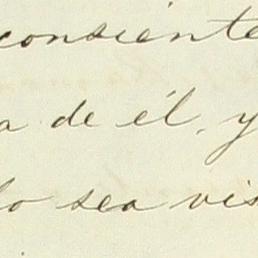 consiente
a de él, y
lo sea vis